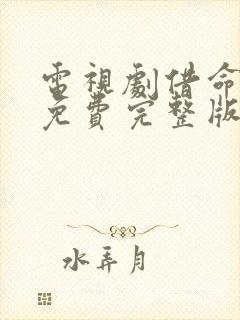 電視劇借命
免費完整版
水弄月